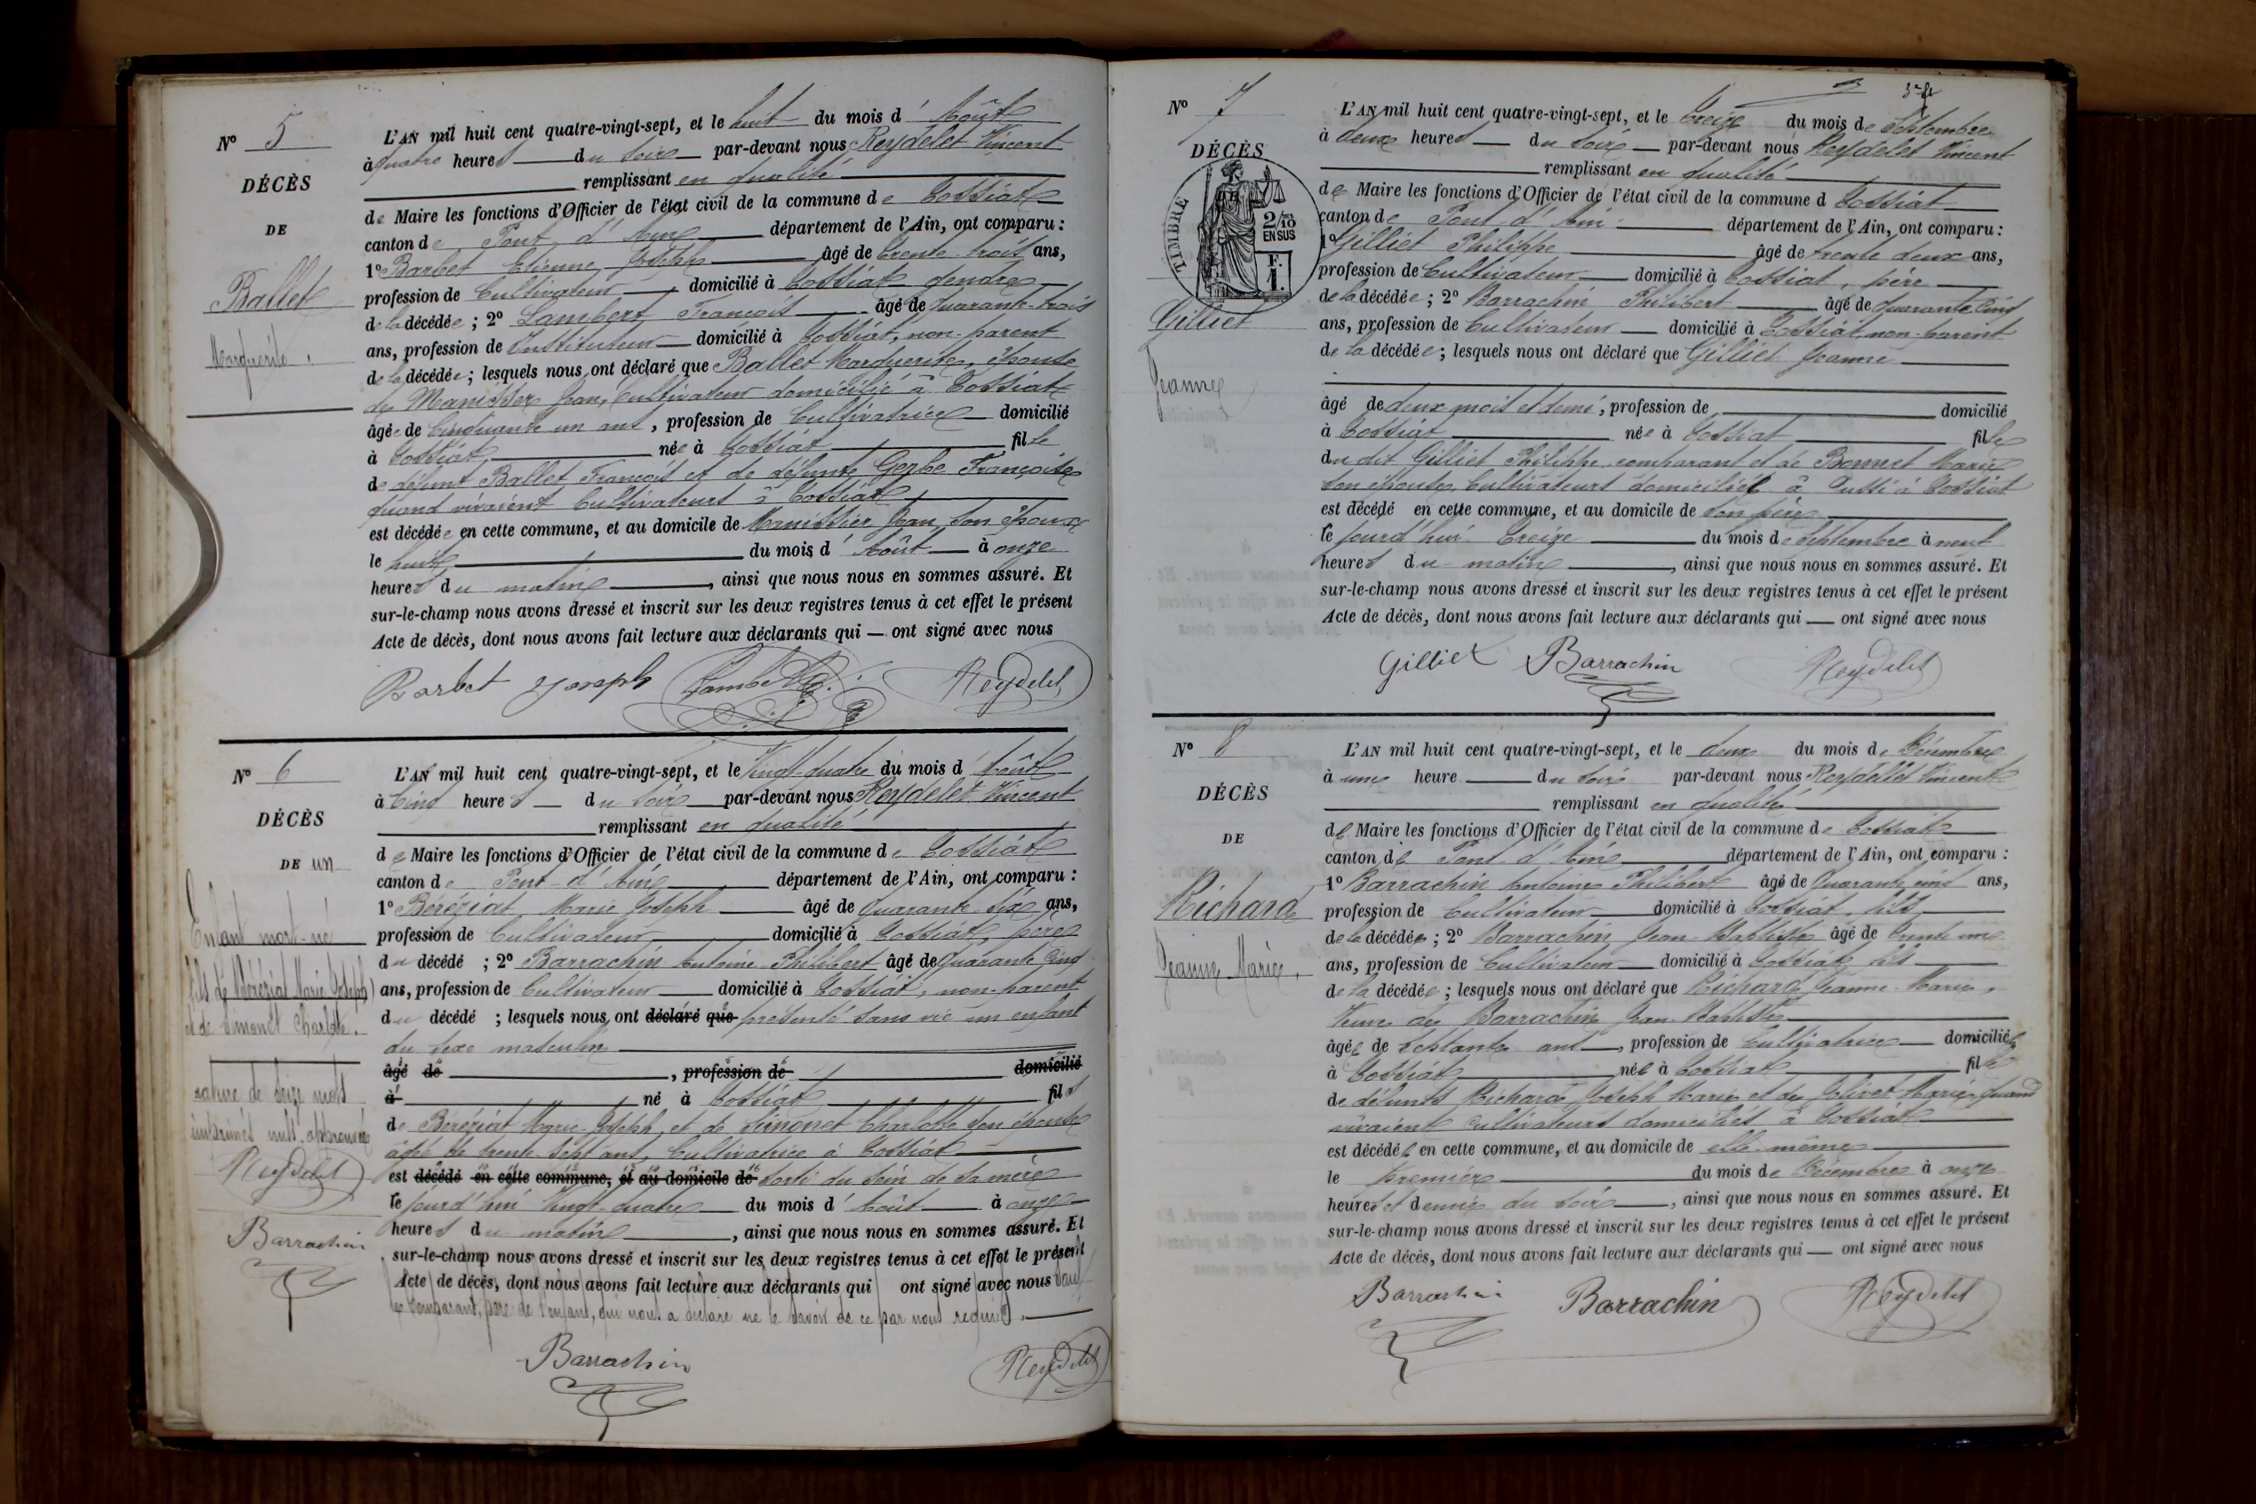 N° 5
DÉCÈS
DE
Ballet
Marguerite.
L'AN mil huit cent quatre-vingt-sept, et le huit du mois d'Août
à quatre heures du soir par-devant nous Reydelet Vincent
remplissant en qualité
de Maire les fonctions d'Officier de l'état civil de la commune de Cossiat
canton de Pont d'Ain département de l'Ain, ont comparu :
1° Barbet Etienne Joseph âgé de trente-trois ans,
profession de Cultivateur, domicilié à Cossiat gendre
de la décédée ; 2° Lambert François âgé de quarante-trois
ans, profession de Instituteur domicilié à Cossiat, non-parent
de la décédée ; lesquels nous ont déclaré que Ballet Marguerite, épouse
de Manissier Jean, Cultivateur domicilié à Cossiat
âgée de Cinquante un ans, profession de Cultivatrice domicilié
à Cossiat née à Cossiat fille
de défunt Ballet François et de défunte Gerbe Françoise
quand vivaient Cultivateurs à Cossiat
est décédée en cette commune, et au domicile de Manissier Jean, son époux
le huit du mois d'Août à onze
heures du matin, ainsi que nous nous en sommes assuré. Et
sur-le-champ nous avons dressé et inscrit sur les deux registres tenus à cet effet le présent
Acte de décès, dont nous avons fait lecture aux déclarants qui — ont signé avec nous
Barbet Joseph Lambert Reydelet
N° 6
DÉCÈS
DE un
Enfant mort-né
fils de Béréziat Marie Joseph
et de Simonet Charlotte.
rature de seize mots
imprimés nuls approuvée
Reydelet
Barrachin
L'AN mil huit cent quatre-vingt-sept, et le Vingt quatre du mois d'Août
à Cinq heures du soir par-devant nous Reydelet Vincent
remplissant en qualité
de Maire les fonctions d'Officier de l'état civil de la commune de Cossiat
canton de Pont d'Ain département de l'Ain, ont comparu :
1° Béréziat Marie Joseph âgé de quarante six ans,
profession de Cultivateur domicilié à Cossiat, père
du décédé ; 2° Barrachin Antoine Philibert âgé de quarante Cinq
ans, profession de Cultivateur domicilié à Cossiat, non-parent
du décédé ; lesquels nous ont déclaré que présenté sans vie un enfant
du sexe masculin
âgé de, profession de domicilié
à né à Cossiat fils
de Béréziat Marie-Joseph et de Simonet Charlotte son épouse
âgée de trente-sept ans, Cultivatrice à Cossiat
est décédé en cette commune, et au domicile de sorti du sein de sa mère
le jourd'hui Vingt quatre du mois d'Août à onze
heures du matin, ainsi que nous nous en sommes assuré. Et
sur-le-champ nous avons dressé et inscrit sur les deux registres tenus à cet effet le présent
Acte de décès, dont nous avons fait lecture aux déclarants qui ont signé avec nous sauf
le comparant, père de l'enfant, qui nous a déclaré ne le savoir de ce par nous requis.
Barrachin Reydelet
N° 7
DÉCÈS
TIMBRE
2/10
EN SUS
F.
1.
Gilliet
Jeanne
L'AN mil huit cent quatre-vingt-sept, et le treize du mois de Septembre
à deux heures du soir par-devant nous Reydelet Vincent
remplissant en qualité
de Maire les fonctions d'Officier de l'état civil de la commune d Cossiat
canton de Pont d'Ain département de l'Ain, ont comparu :
1° Gilliet Philippe âgé de trente deux ans,
profession de Cultivateur domicilié à Cossiat, père
de la décédée ; 2° Barrachin Philibert âgé de quarante Cinq
ans, profession de Cultivateur domicilié à Cossiat, non-parent
de la décédée ; lesquels nous ont déclaré que Gilliet Jeanne
âgé de deux mois et demi, profession de domicilié
à Cossiat née à Cossiat fille
du dit Gilliet Philippe comparant et de Bonnet Marie
son épouse, Cultivateurs domiciliés à Aussi à Cossiat
est décédé en cette commune, et au domicile de son père
le jourd'hui treize du mois de Septembre à neuf
heures du matin, ainsi que nous nous en sommes assuré. Et
sur-le-champ nous avons dressé et inscrit sur les deux registres tenus à cet effet le présent
Acte de décès, dont nous avons fait lecture aux déclarants qui — ont signé avec nous
Gilliet Barrachin Reydelet
N° 8
DÉCÈS
DE
Richard
Jeanne Marie.
L'AN mil huit cent quatre-vingt-sept, et le deux du mois de Décembre
à une heure du soir par-devant nous Reydelet Vincent
remplissant en qualité
de Maire les fonctions d'Officier de l'état civil de la commune de Cossiat
canton de Pont d'Ain département de l'Ain, ont comparu :
1° Barrachin Antoine Philibert âgé de Quarante cinq ans,
profession de Cultivateur domicilié à Cossiat, fils
de la décédée ; 2° Barrachin Jean-Baptiste âgé de trente un
ans, profession de Cultivateur domicilié à Cossiat fils
de la décédée ; lesquels nous ont déclaré que Richard Jeanne-Marie,
Veuve de Barrachin Jean-Baptiste
âgée de septante ans, profession de Cultivatrice domiciliée
à Cossiat née à Cossiat fille
de défunts Richard Joseph Marie et de Jolivet Marie quand
vivaient Cultivateurs domiciliés à Cossiat
est décédée en cette commune, et au domicile de elle-même
le premier du mois de Décembre à onze
heures et demie du soir, ainsi que nous nous en sommes assuré. Et
sur-le-champ nous avons dressé et inscrit sur les deux registres tenus à cet effet le présent
Acte de décès, dont nous avons fait lecture aux déclarants qui — ont signé avec nous
Barrachin Barrachin Reydelet